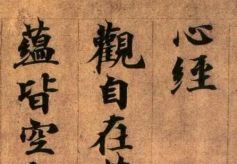 心經
觀自在
蘊皆空